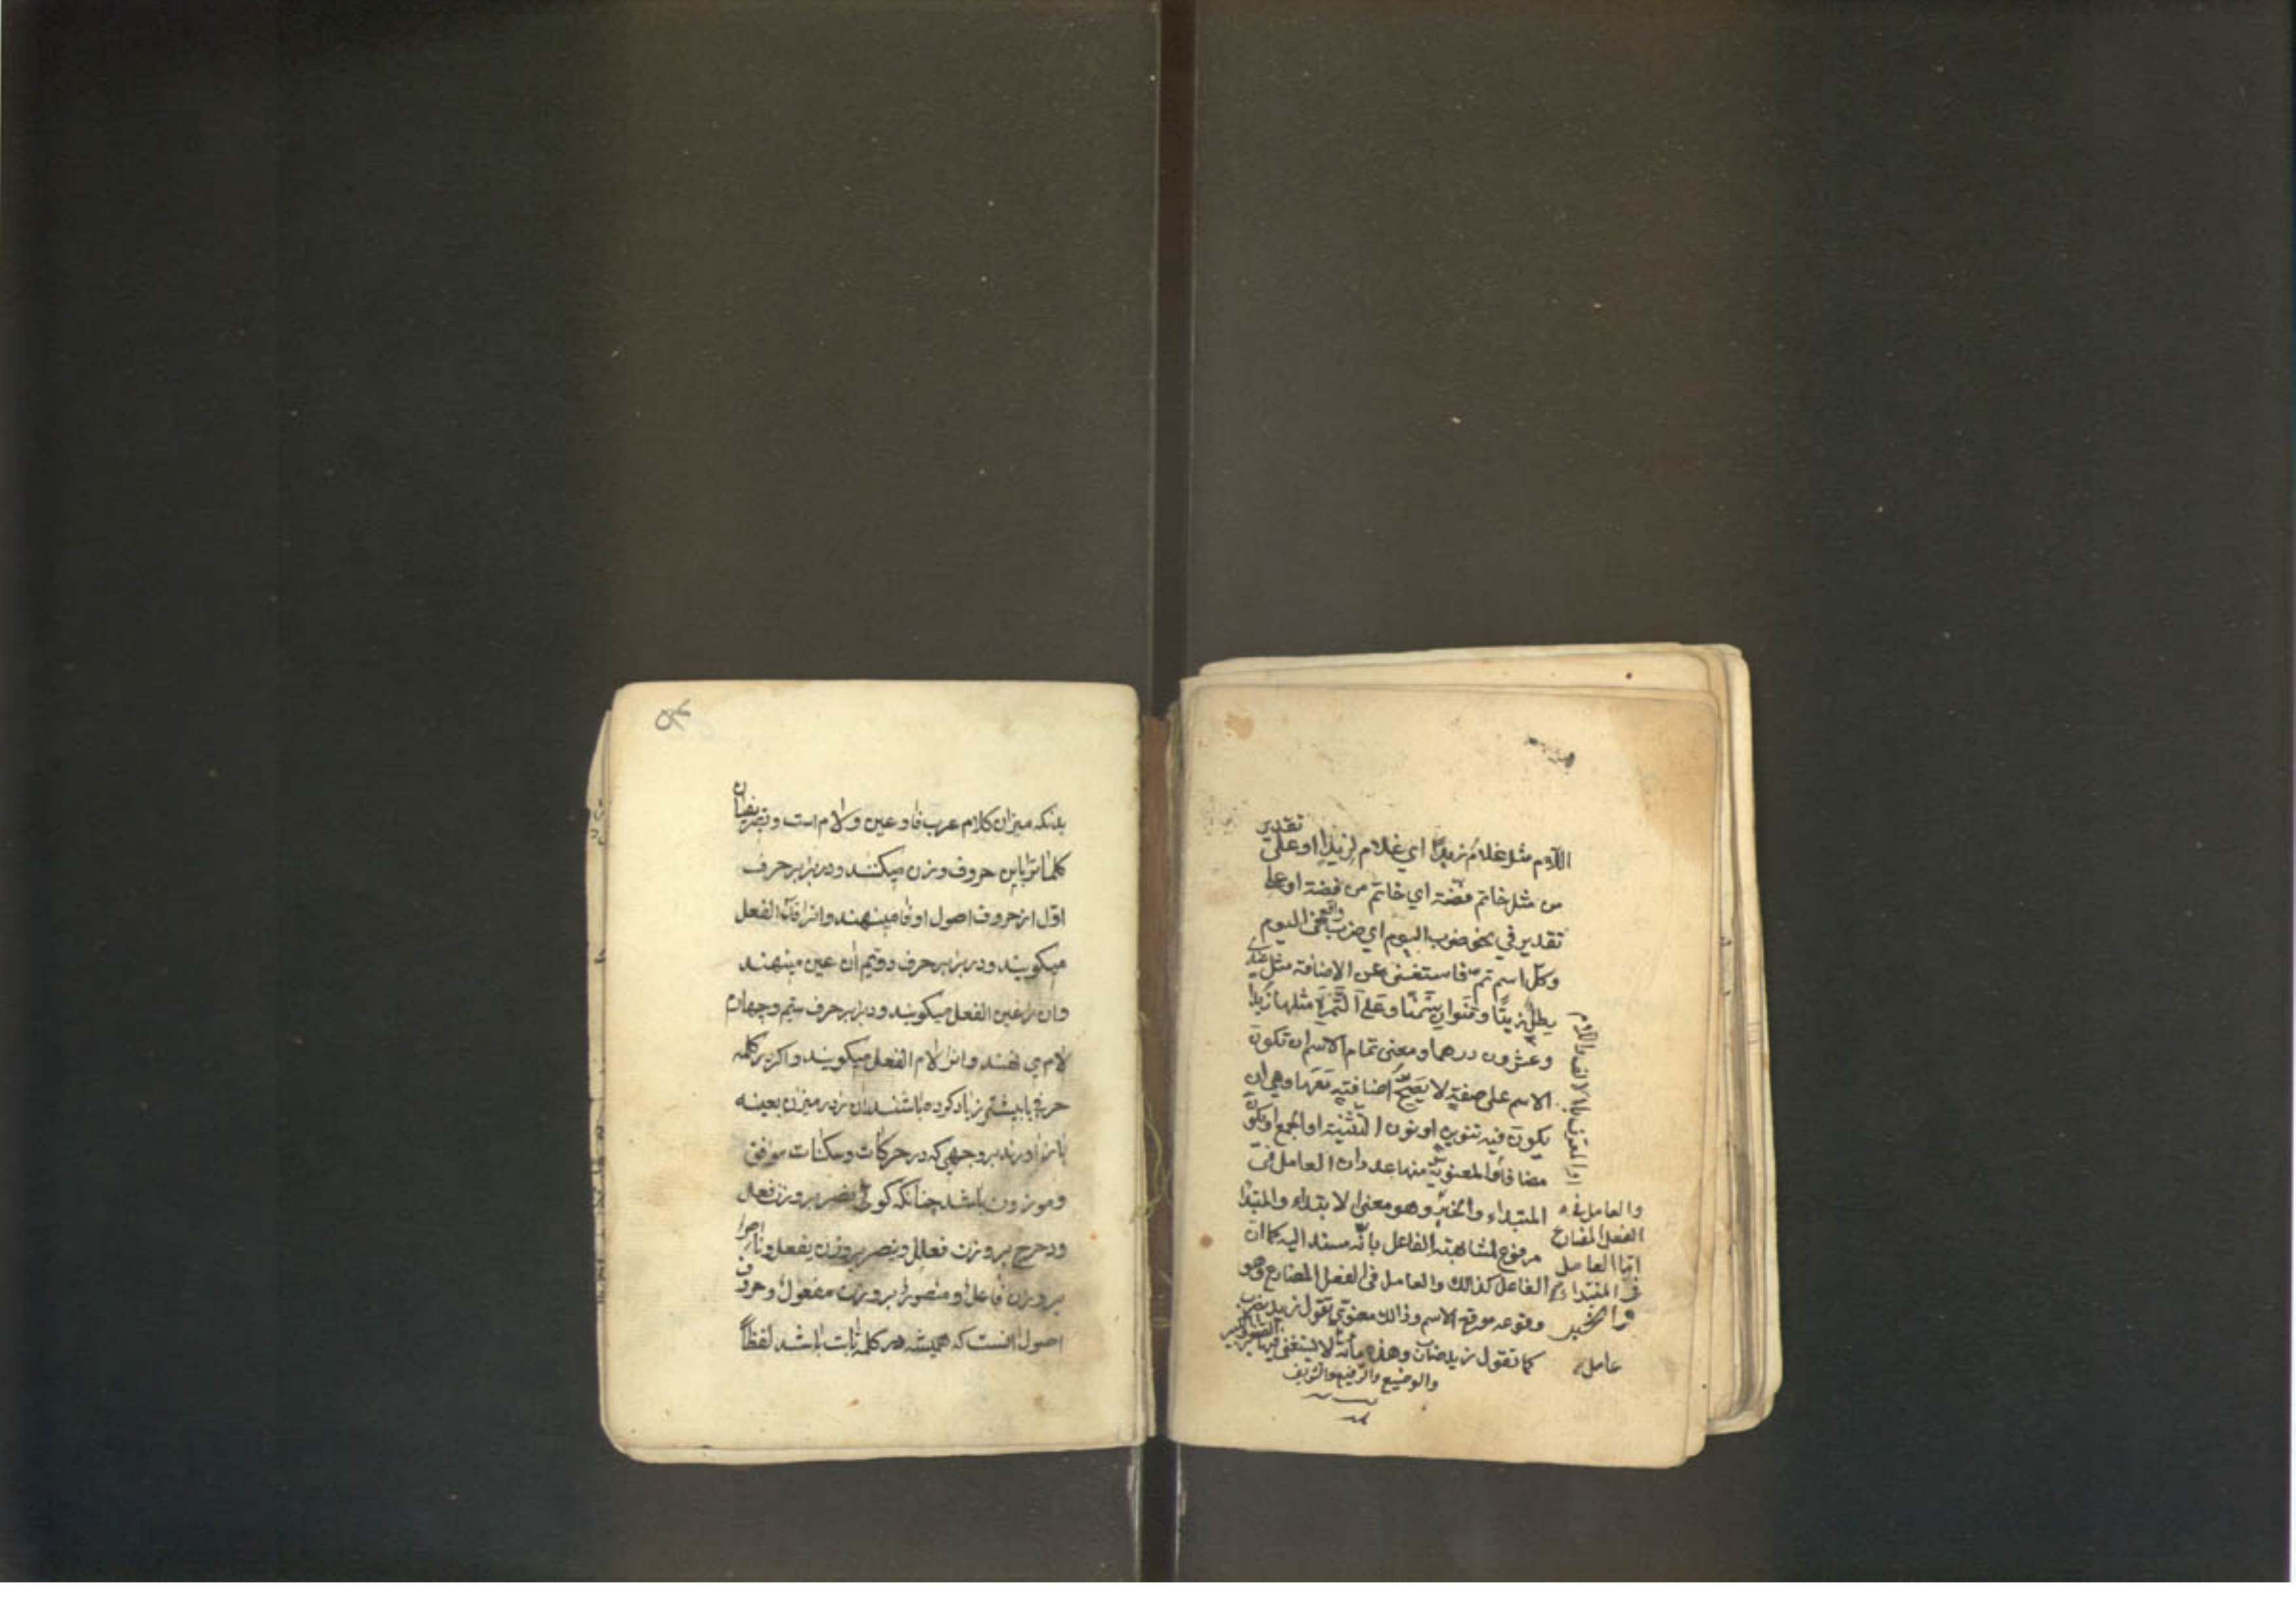 تقدير
اللام مثل غلام زيد اي غلام لزيد او على
من مثل خاتم فضة اي خاتم من فضة او على
تقدير في نحو ضرب اليوم اي ضرب واقع في اليوم
وكل اسم تم فاستغنى عن الاضافة مثل عندي
رطل زيتا ومنوان سمنا وعلى التمرة مثلها زبدا
وعشرون درهما ومعنى تمام الاسم ان تكون
الاسم على صفة لا يصح اضافته معها وهي ان
يكون فيه تنوين او نون التثنية او الجمع او يكون
مضافا والمعنوية منها عددان العامل في
المبتداء والخبر وهو معنى الابتداء والمبتدا
مرفوع لمشابهته الفاعل بانه مسند اليه كما ان
الفاعل كذالك والعامل في الفعل المضارع وهو
وقوعه موقع الاسم وذالك معنوي تقول زيد يضرب
كما تقول زيد ضارب وهذه مأئة لا يستغني
والوضيع والرفيع والشريف
او المعرف بالالف واللام
والعامل في
الفعل المضارع
اما العامل
في المبتداء
والخبر
عامل
بدنکه میزان کلام عرب فا و عین و لام است و تصریفان
کلماترا باین حروف وزن میکنند و در برابر حرف
اول از حروف اصول او فا مینهند و انرا فاء الفعل
میکویند و در برابر حرف دویم ان عین مینهند
و ان را عین الفعل میکویند و در برابر حرف سیم و چهارم
لام می نهند و انرا لام الفعل میکویند و اکر در کلمه
حرفی یا بیشتر زیاد کرده باشند ان را در میزان بعینه
باز اورند بر وجهی که در حرکات و سکنات موافق
و موزون باشد چنانکه کوئی نصر بر وزن فعل
ودحرج بر وزن فعلل و ینصر بر وزن یفعل و ناصرا
بر وزن فاعل و منصورا بر وزن مفعول و حروف
اصول انست که همیشه در کلمه ثابت باشد لفظا